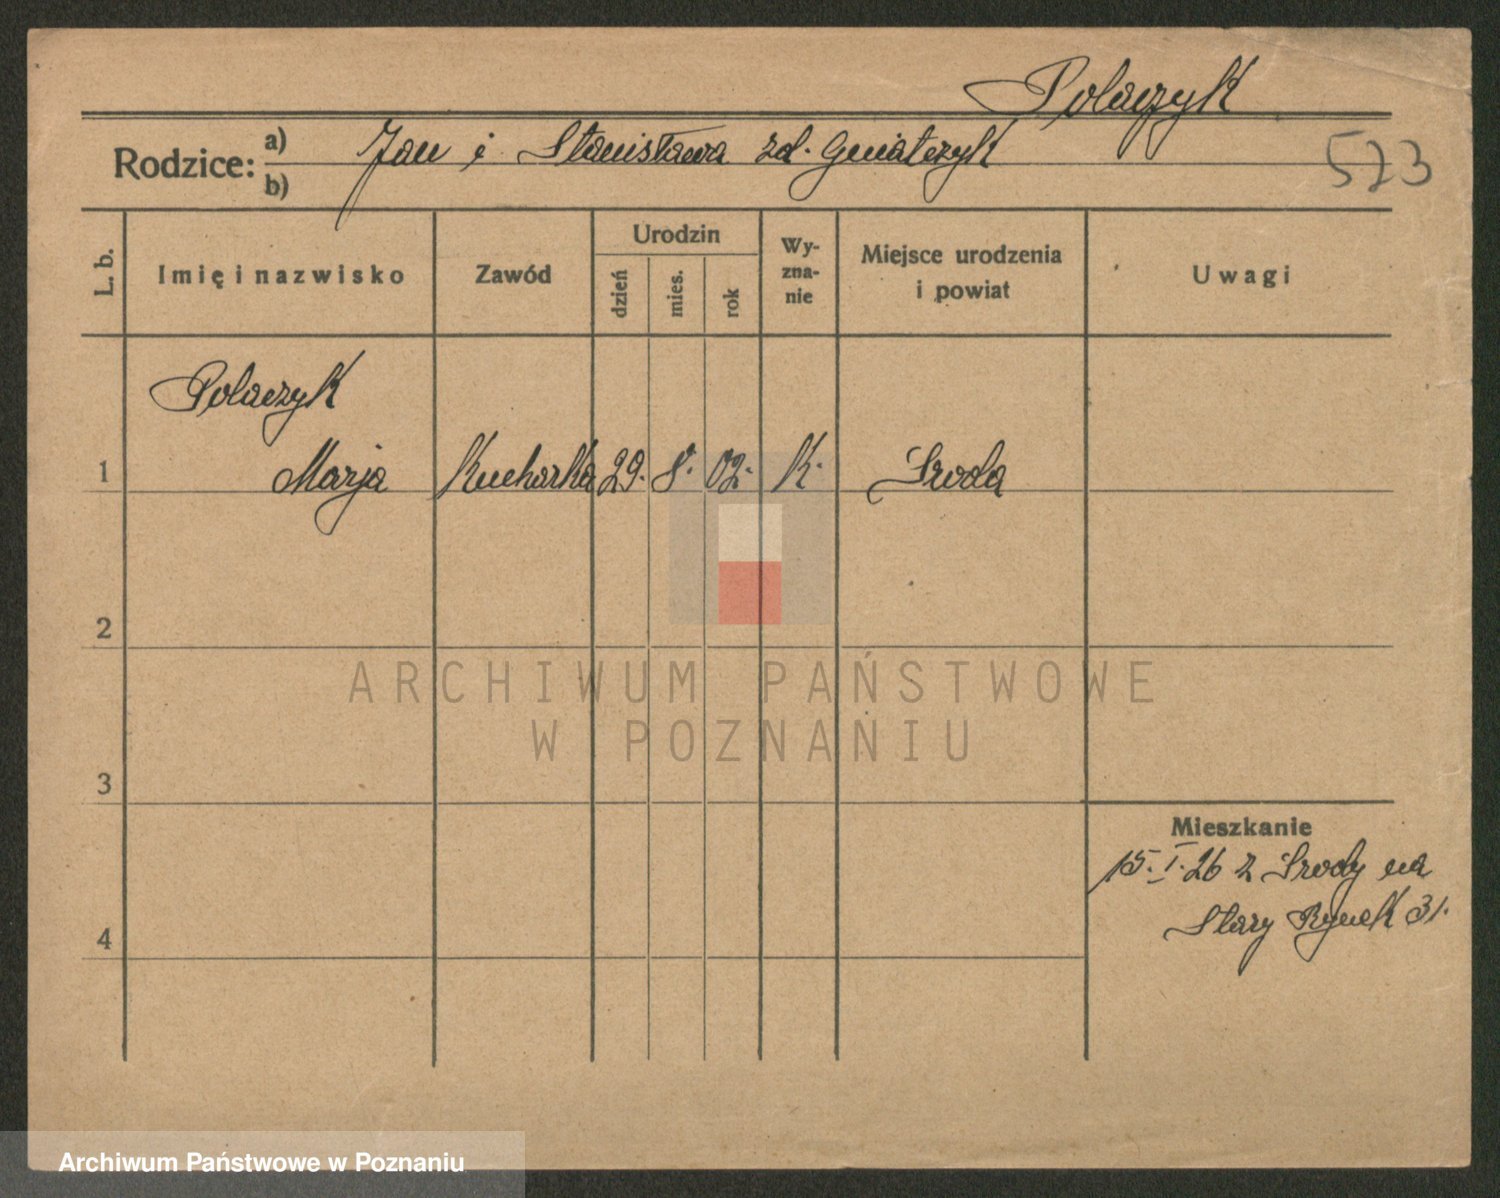 Polaczyk
Rodzice: a) Jan i Stanisława zd. Gniatczyk
b)
573
L. b.
Imię i nazwisko
Zawód
Urodzin
dzień
mies.
rok
Wy-
zna-
nie
Miejsce urodzenia
i powiat
Uwagi
Polaczyk
1 Marja Kucharka 29. 8. 02. K. Sroda
2
3
4
Mieszkanie
15. I. 26 z Srody na
Stary Rynek 31.
ARCHIWUM PAŃSTWOWE
W POZNANIU
Archiwum Państwowe w Poznaniu